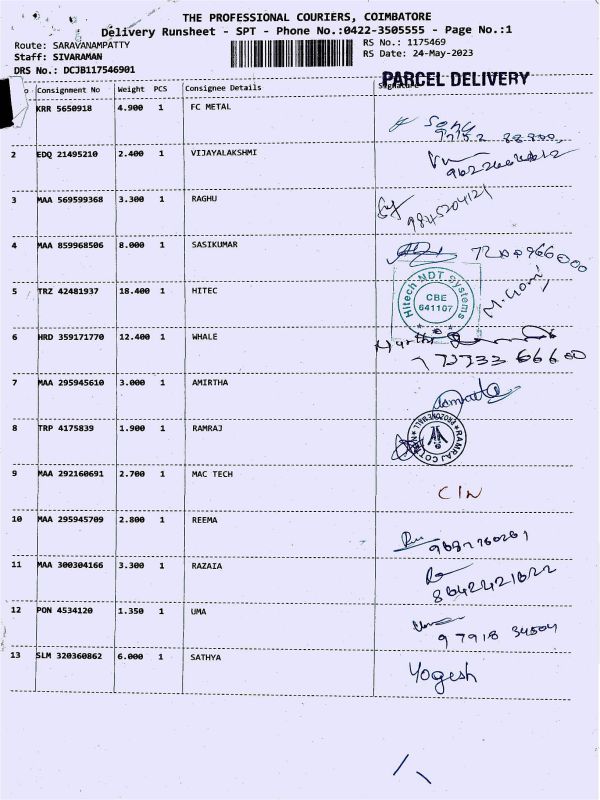 THE PROFESSIONAL COURIERS, COIMBATORE
Delivery Runsheet - SPT - Phone No.:0422-3505555 - Page No.:1
Route: SARAVANAMPATTY RS No.: 1175469
Staff: SIVARAMAN RS Date: 24-May-2023
DRS No.: DCJB117546901
PARCEL DELIVERY
Consignment No Weight PCS Consignee Details Signature
KRR 5650918 4.900 1 FC METAL
2 EDQ 21495210 2.400 1 VIJAYALAKSHMI
3 MAA 569599368 3.300 1 RAGHU
9845204121
4 MAA 859968506 8.000 1 SASIKUMAR
Hitech NDT Systems
CBE
641107
5 TRZ 42481937 18.400 1 HITEC
6 HRD 359171770 12.400 1 WHALE
7 MAA 295945610 3.000 1 AMIRTHA
8 TRP 4175839 1.900 1 RAMRAJ
RAMRAJ COTTON
9 MAA 292160691 2.700 1 MAC TECH
10 MAA 295945709 2.800 1 REEMA
11 MAA 300304166 3.300 1 RAZAIA
12 PON 4534120 1.350 1 UMA
97918 34504
13 SLM 320360862 6.000 1 SATHYA
Yogesh